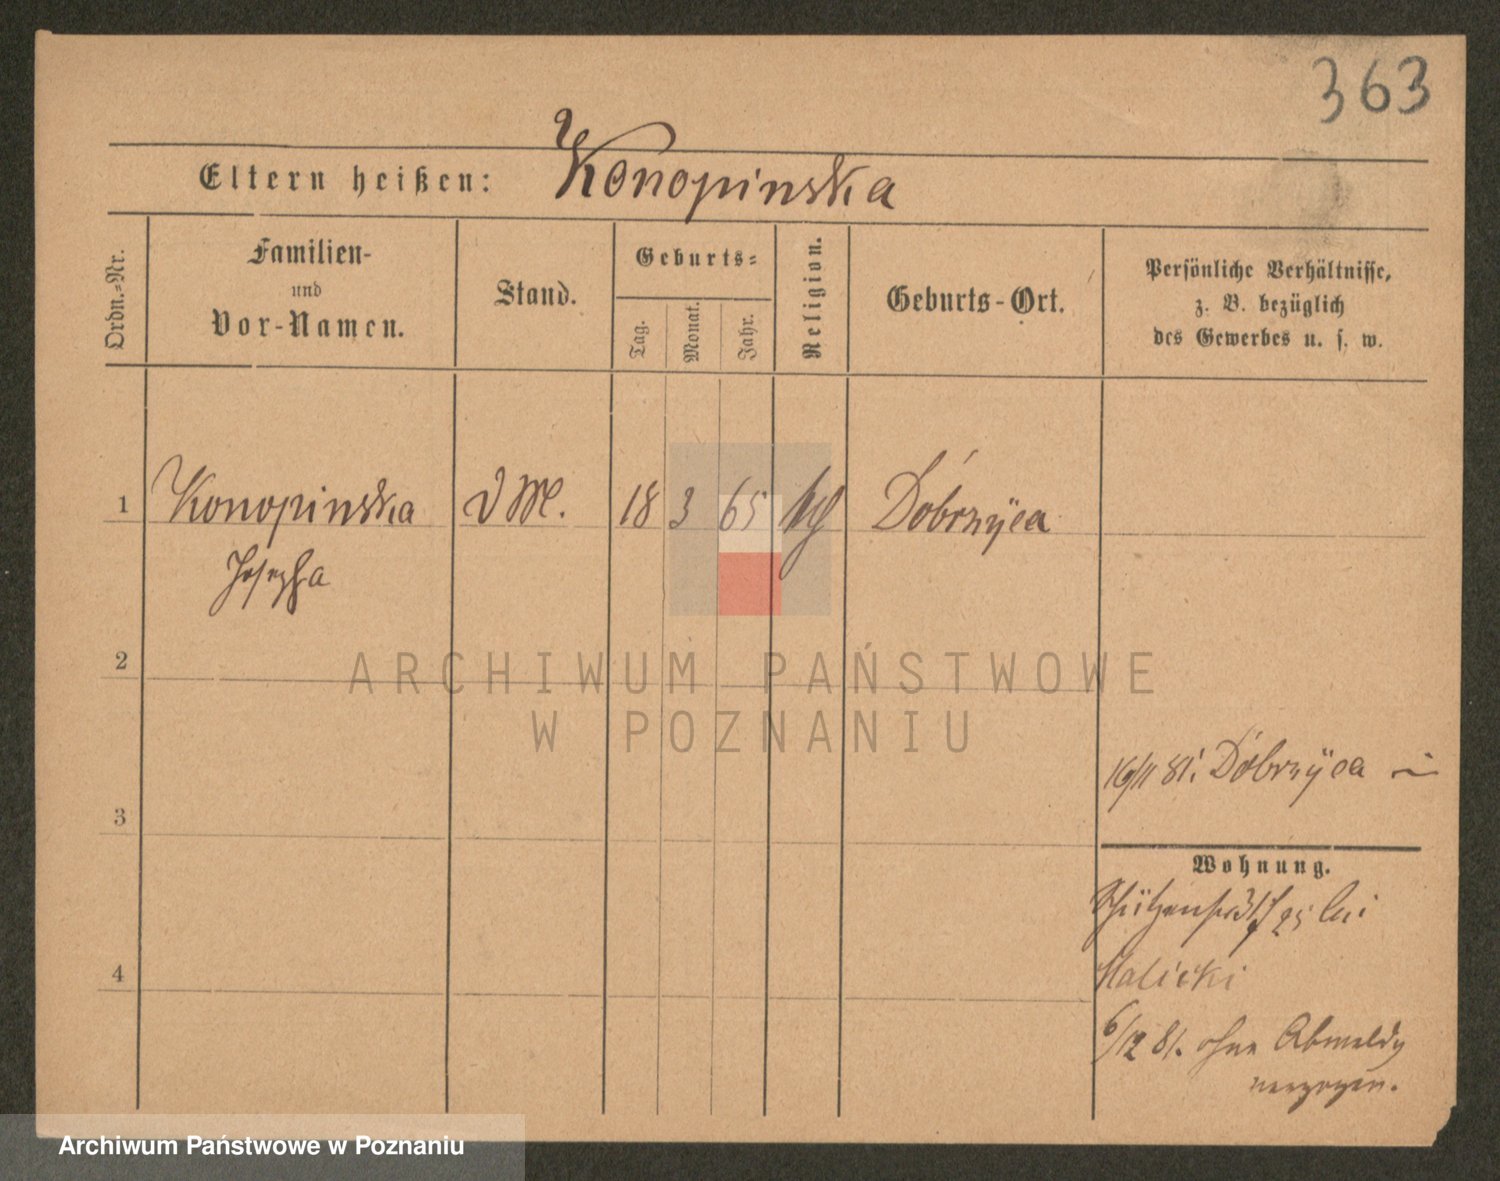 363
Eltern heißen: Konopinska
Ordn.-Nr.
Familien-
und
Vor-Namen.
Stand.
Geburts-
Tag.
Monat.
Jahr.
Religion.
Geburts-Ort.
Persönliche Verhältnisse,
z. B. bezüglich
des Gewerbes u. s. w.
1 Konopinska D M. 18 3 65 Dobrzÿca
Josepha
2
3
4
ARCHIWUM PAŃSTWOWE
W POZNANIU
16/11 81. Dobrzÿca
Wohnung.
Schützenstr 25 bei
Malicki
6/12 81. ohne Abmeldg
verzogen.
Archiwum Państwowe w Poznaniu